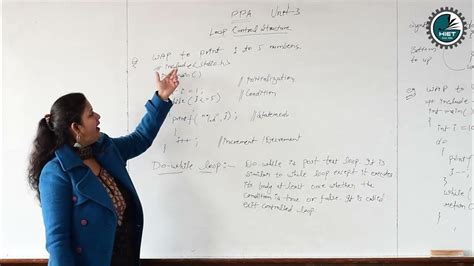 PPA Unit-3
Loop Control Structure
WAP to print 1 to 5 numbers.
# include <stdio.h>
main()
i = 1; // Initialization
while (i<=5) // Condition
{
printf("%d", i); // Statement
i++; // Increment/Decrement
}
Do-while loop:- Do-while is post test loop. It is
similar to while loop except it executes
its body at least once whether the
condition is true or false. It is called
exit controlled loop.
HIET
Bottom
to up
eg WAP to
# include
int main(
{
int i =
do
{
i--
}
while
return
}